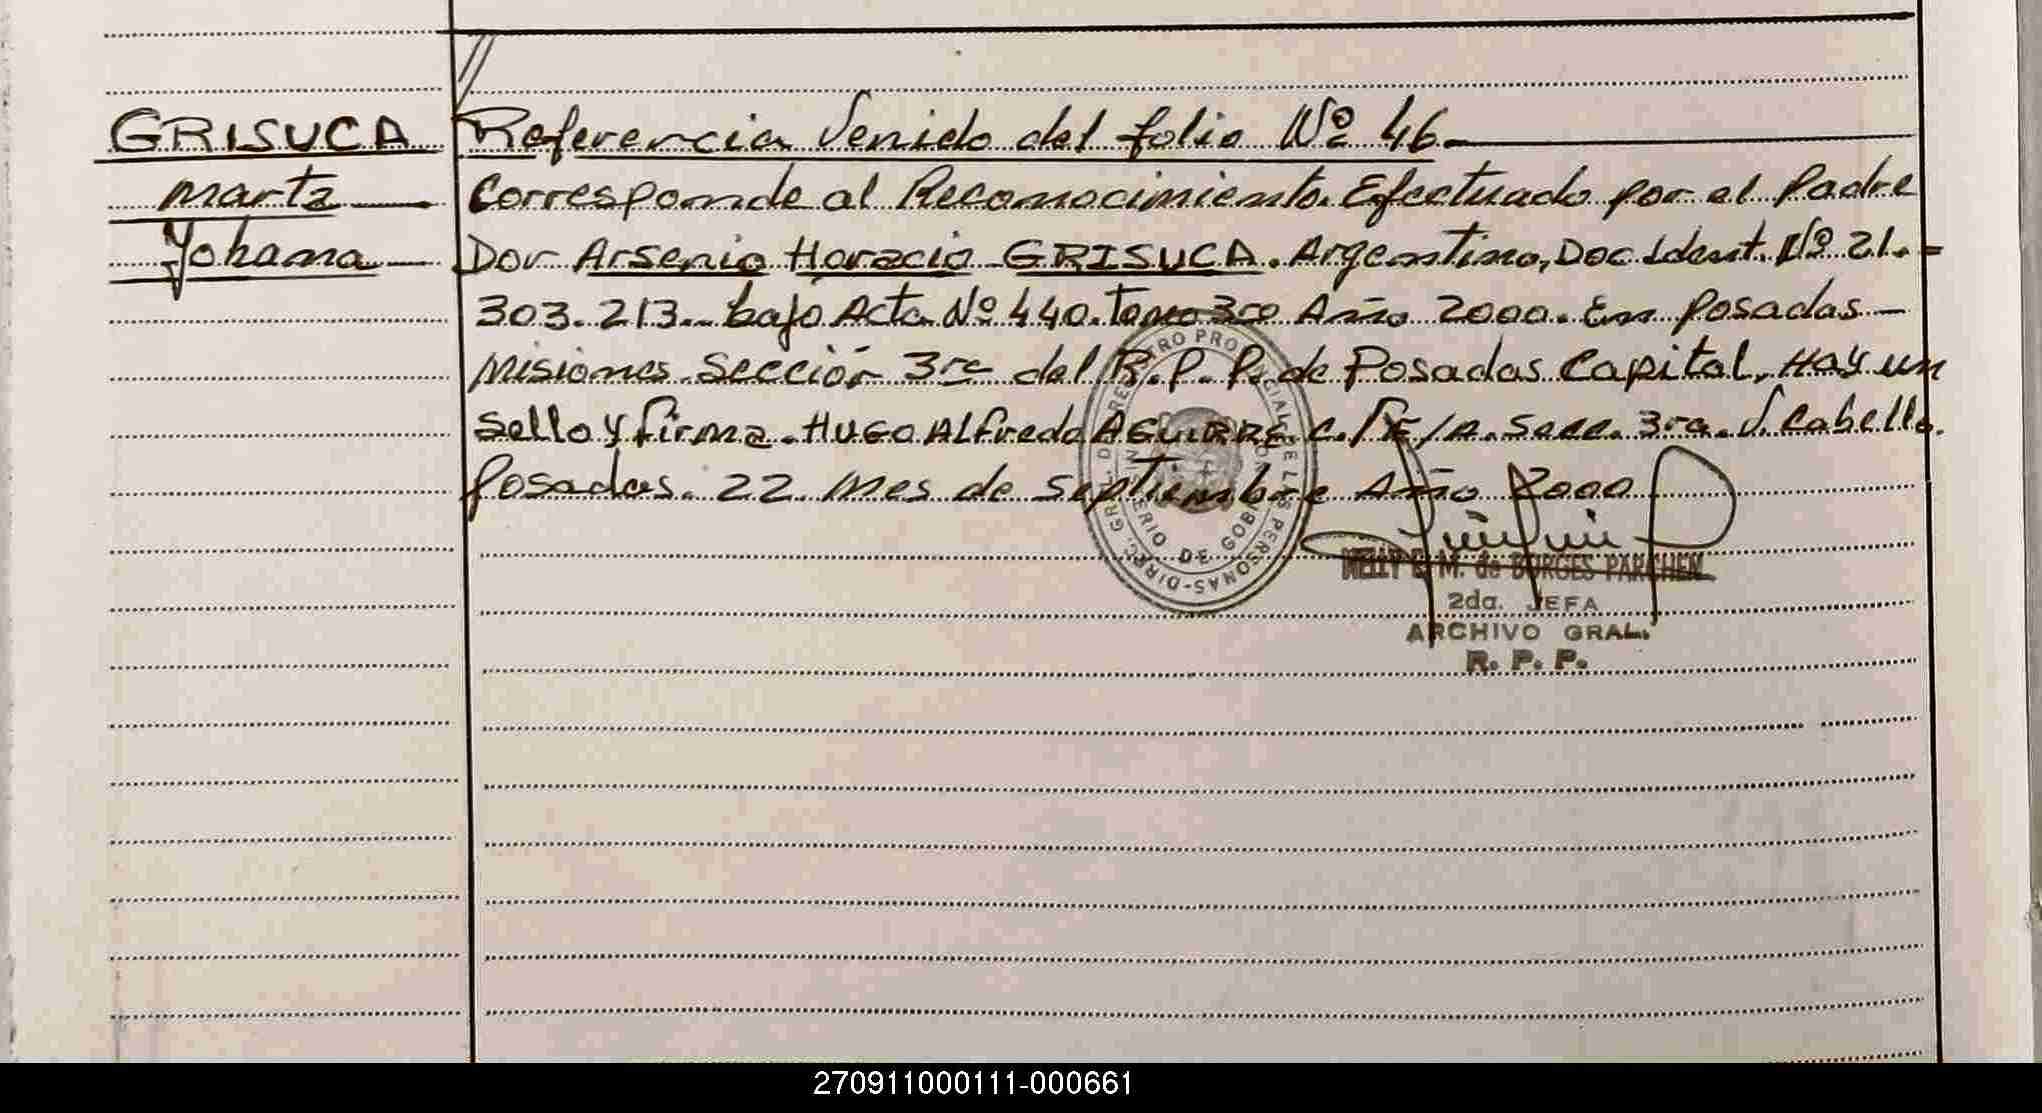 //
GRISUCA Referencia Venido del folio Nº 46.
Marta Corresponde al Reconocimiento. Efectuado por el Padre
Yohana Dor Arsenio Horacio GRISUCA. Argentino, Doc Ident. Nº 21.=
303.213. bajo Acta Nº 440. tomo 3ro Año 2000. En Posadas —
Misiones. Sección 3ra del R.P.P. de Posadas Capital. Hay un
Sello y firma. HUGO ALfredo AGUIRRE. Secc. 3ra. V. Cabello.
Posadas. 22 Mes de Septiembre Año 2000
NELLY E. M. de BORGES PARCHEN
2da. JEFA
ARCHIVO GRAL.
R. P. P.
270911000111-000661